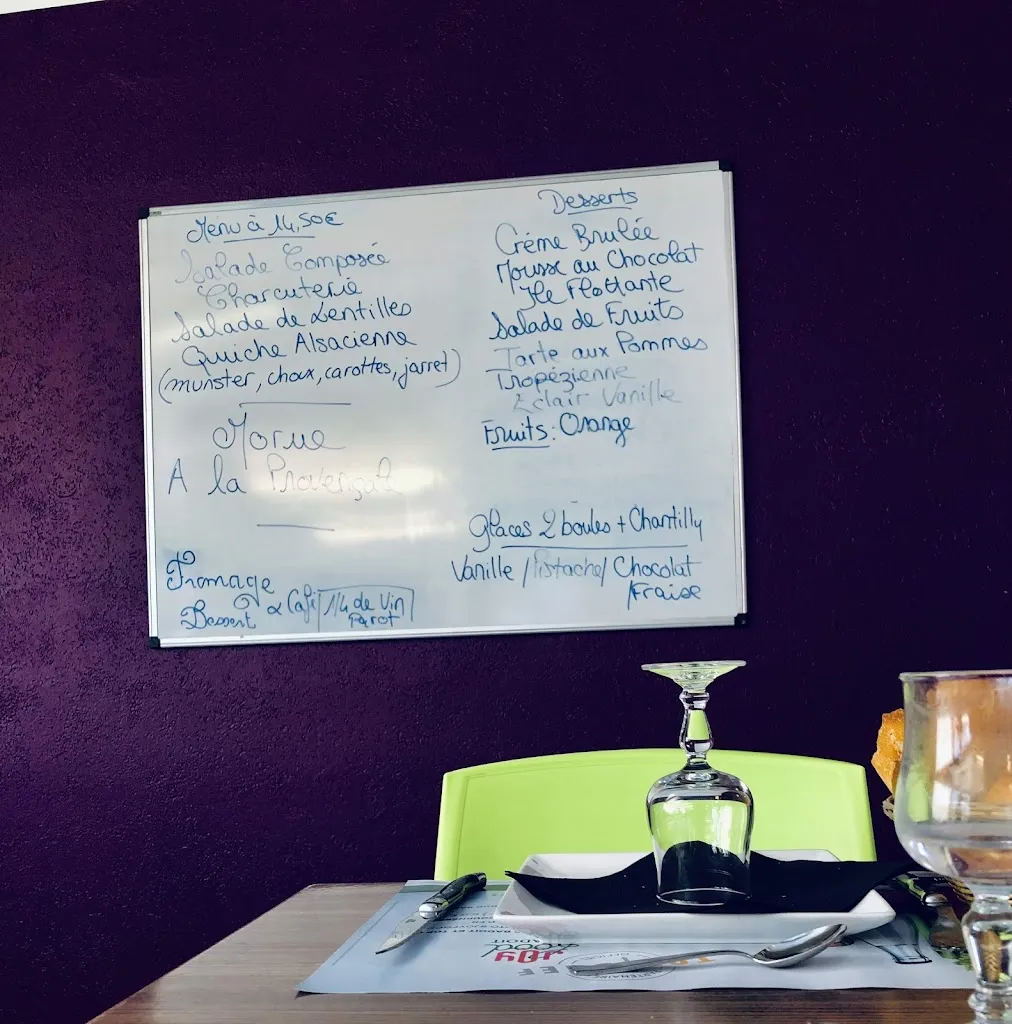 Menu à 14,50€
Salade Composée
Charcuterie
Salade de Lentilles
Quiche Alsacienne
(munster, choux, carottes, jarret)
Morue
A la Provençale
Fromage
Dessert
Café
1/4 de Vin
Desserts
Crème Brulée
Mousse au Chocolat
Ile Flottante
Salade de Fruits
Tarte aux Pommes
Tropézienne
Eclair Vanille
Fruits: Orange
Glaces 2 boules + Chantilly
Vanille / Pistache / Chocolat
/Fraise
JOY
FOOD
BADOIT